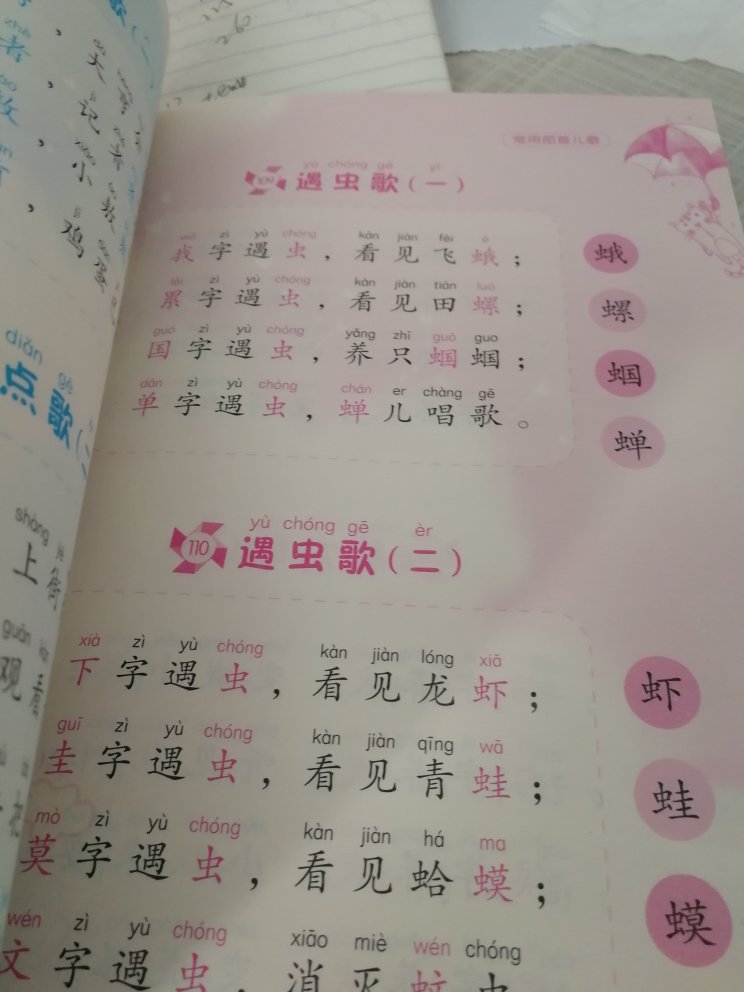 常用部首儿歌
yù chóng gē yī
109 遇虫歌（一）
wǒ zì yù chóng kàn jiàn fēi é
我字遇虫，看见飞蛾；
lěi zì yù chóng kàn jiàn tián luó
累字遇虫，看见田螺；
guó zì yù chóng yǎng zhī guō guo
国字遇虫，养只蝈蝈；
dān zì yù chóng chán er chàng gē
单字遇虫，蝉儿唱歌。
蛾
螺
蝈
蝉
yù chóng gē èr
110 遇虫歌（二）
xià zì yù chóng kàn jiàn lóng xiā
下字遇虫，看见龙虾；
guī zì yù chóng kàn jiàn qīng wā
圭字遇虫，看见青蛙；
mò zì yù chóng kàn jiàn há ma
莫字遇虫，看见蛤蟆；
wén zì yù chóng xiāo miè wén chóng
文字遇虫，消灭蚊虫
虾
蛙
蟆
diǎn gē
点歌（二
shàng jiē
上街
guān kàn
观看